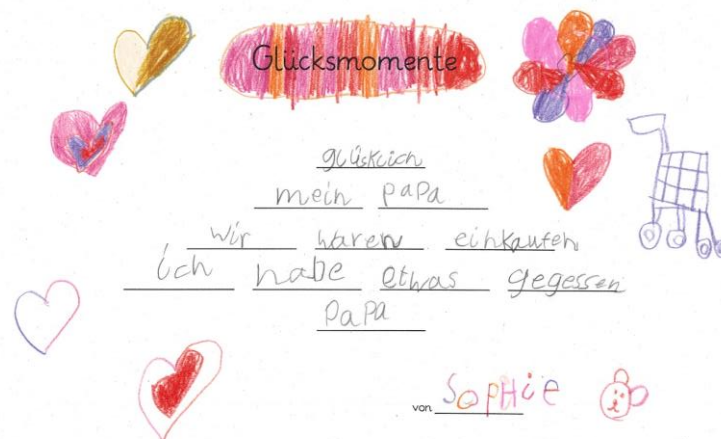 Glücksmomente
glüsklich
mein papa
wir waren einkaufen
ich habe etwas gegessen
papa
von SopHie